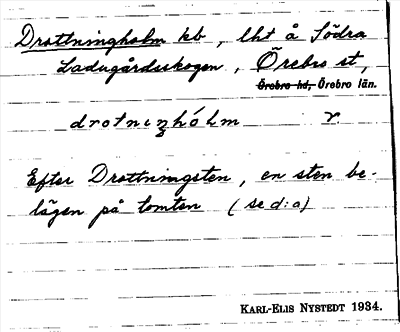 Drottningholm kb, lht å Södra
Ladugårdsskogen, Örebro st,
Örebro hd, Örebro län.
drotnıŋhólm r.
Efter Drottningsten, en sten be-
lägen på tomten (se d:o)
KARL-ELIS NYSTEDT 1934.